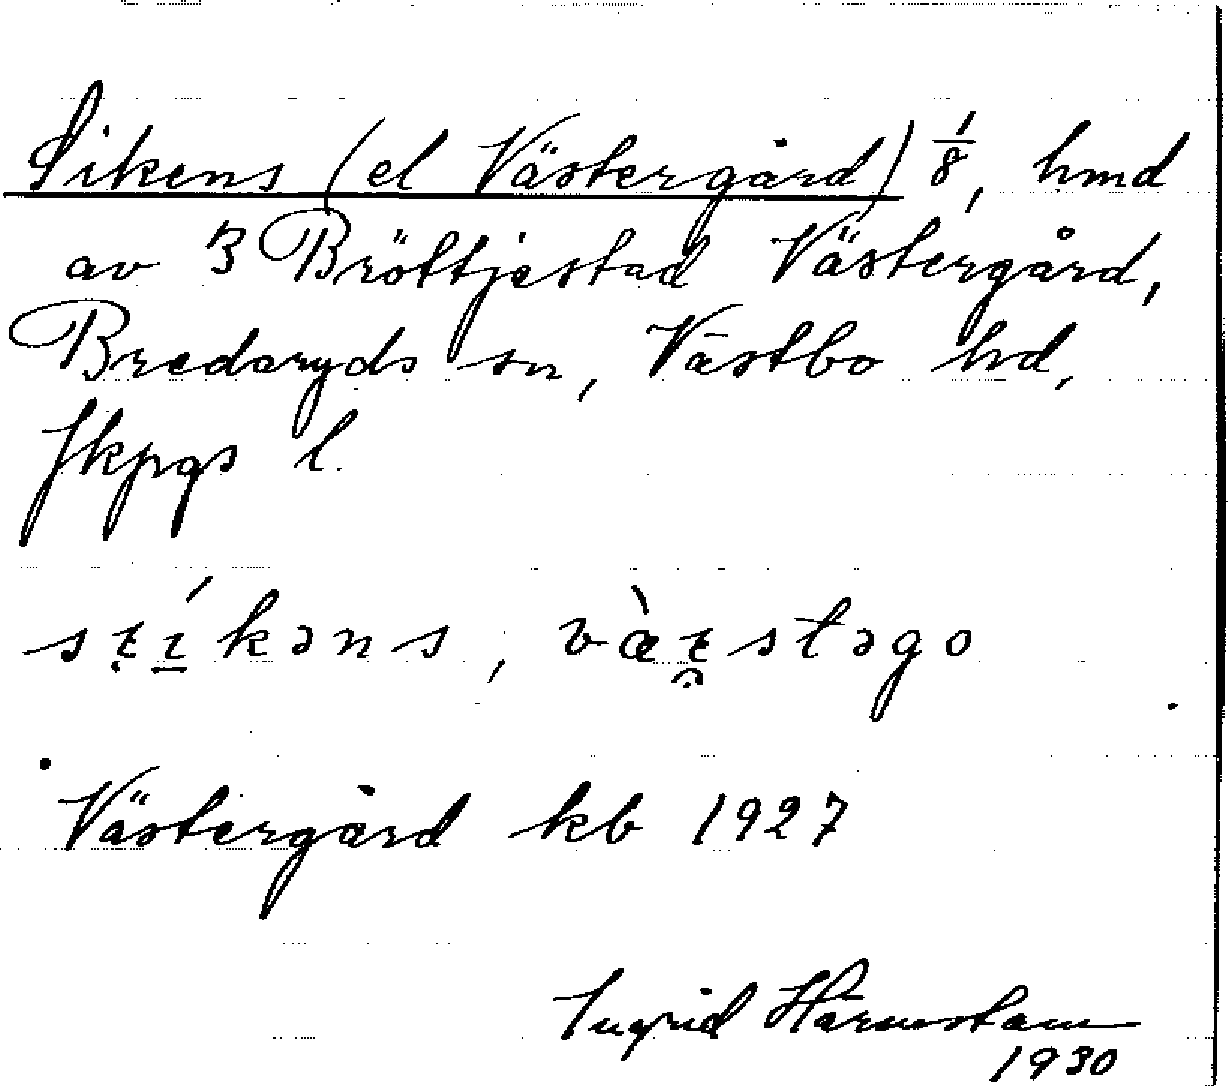 Sikens (el Västergård) 1/8, hmd
av 3 Bröttjestad Västergård,
Bredaryds sn, Västbo hd,
Jkpgs l.
kəns, stəgo
Västergård kb 1927
Ingrid Härmstam
1930